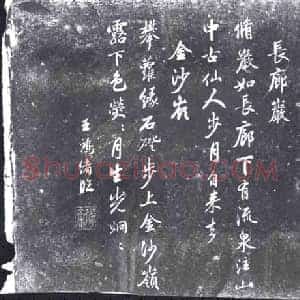 長廊巖
脩巖如長廊下有流泉注山
中古仙人步月旹来去
金沙嶺
攀蘿緣石磴步上金沙嶺
露下色熒〻月生光炯〻
王鴻緒臨